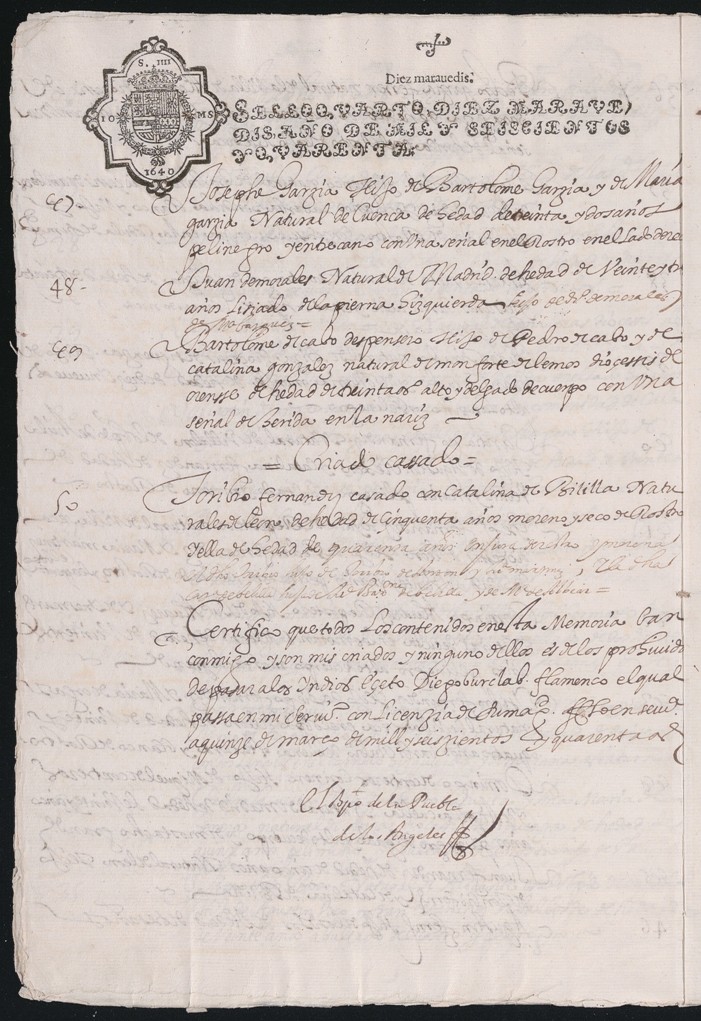 S. IIII
10 MS
1640
Diez marauedis.
SELLO QVARTO, DIEZ MARAVE
DIS, AÑO DE MIL Y SEISCIENTOS
Y QVARENTA.
47. Josephe Garzia Hijo de Bartolome Garzia y de Maria
garzia Natural de Cuenca de hedad de treinta y dos años
pelinegro y entrecano con Una señal en el Rostro en el Lado dere
48- Juan de morales Natural de Madrid. de hedad de Veinte y
años Lisiado de la pierna Yzquierda hijo de de morales
de =
49 Bartolome de cabo despensero Hijo de Pedro de cabo y de
catalina gonzalez natural de monforte de lemos diocessis de
orensse de hedad de treinta as. alto y delgado de cuerpo con Una
señal de herida en la nariz
= Criado cassado =
50 Toribio fernandez casado con Catalina de Bililla Natu
rales de leon de hedad de cinquenta años moreno y seco de Rostro
Y ella de hedad de quarenta años
hijo de
hija de =
Certifico que todos Los contenidos en esta Memoria ban
conmigo y son mis criados y ninguno de ellos es de los prohiuido
de pasar a las Indias Eçeto Diego flamenco el qual
passa en mi seruio. con Licenzia de su magd. ffho en seuia
a quinze de março de mill y seiszientos y quarenta as
El obpo de la Puebla
de los Angeles